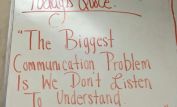 Today's Quote:
"The Biggest
Communication Problem
Is We Don't Listen
To Understand.